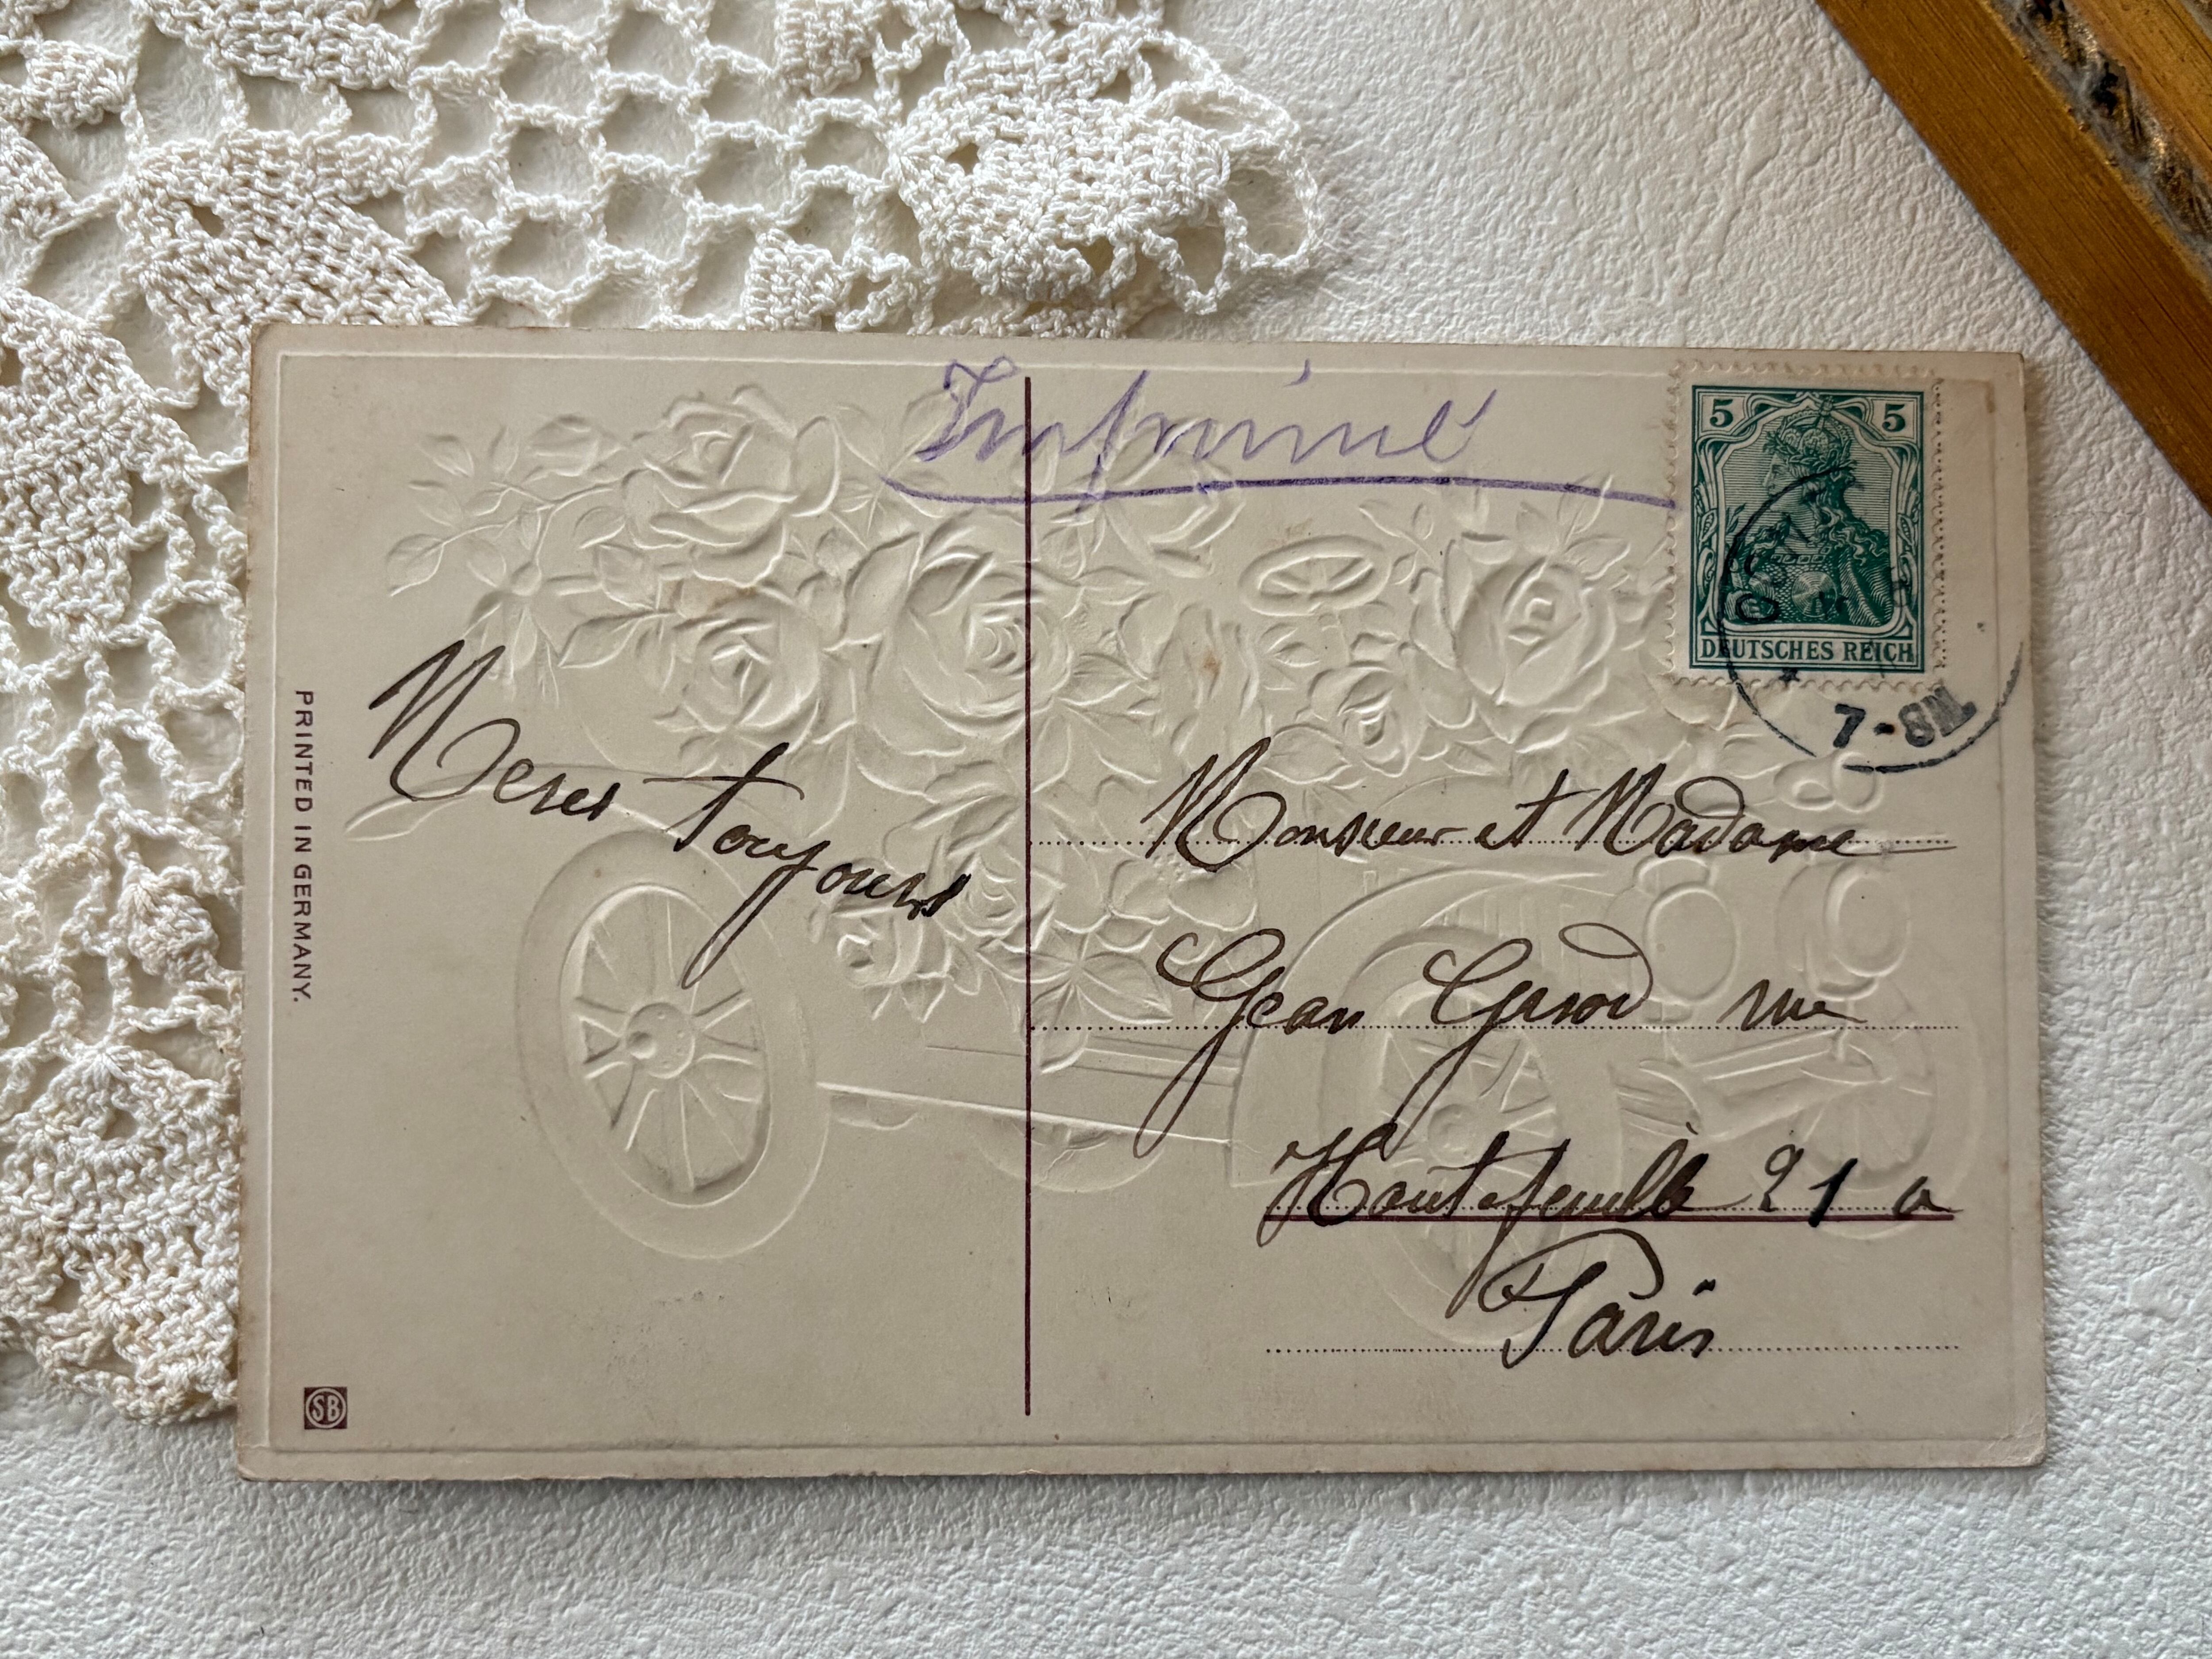 Imprimé
5 5
DEUTSCHES REICH
7-8N.
PRINTED IN GERMANY.
toujours
Monsieur et Madame
Jean Gerod rue
Hautefeuille 21 a
Paris
SB